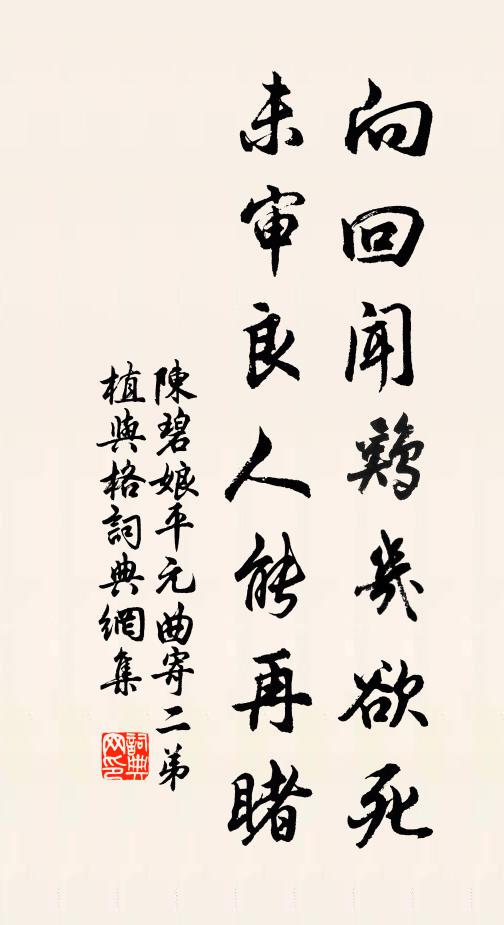 向回聞鷄幾欲死
未審良人能再睹
陳碧娘平元曲寄二弟
植與格詞典網集
詞典网印